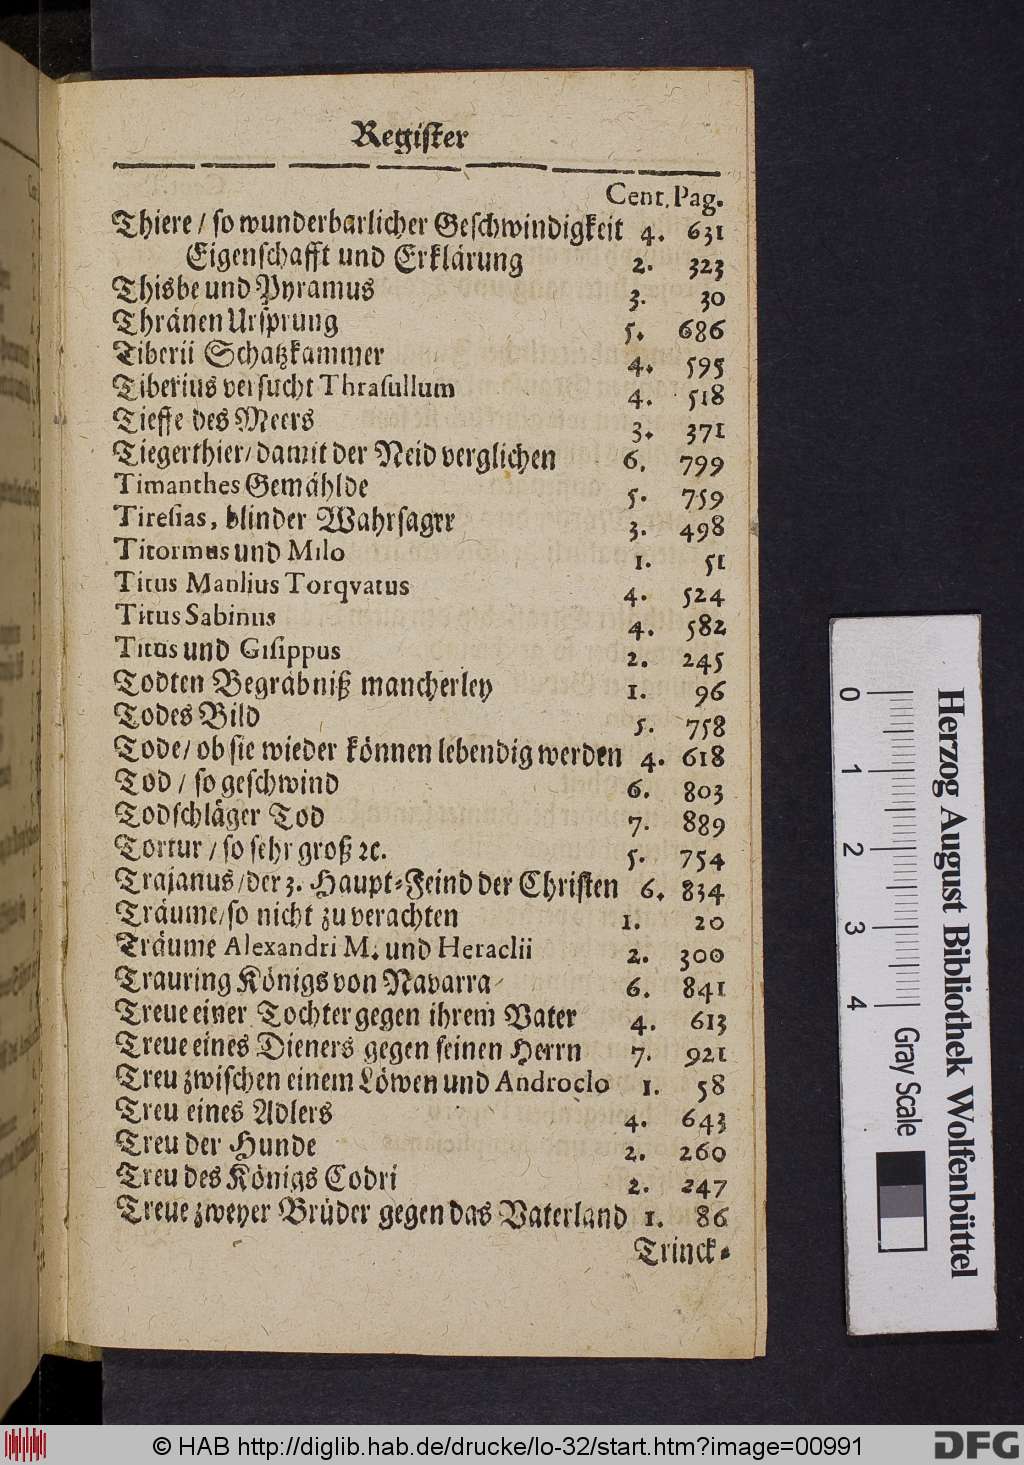 Register
Cent. Pag.
Thiere / so wunderbarlicher Geschwindigkeit 4. 631
Eigenschafft und Erklärung 2. 323
Thisbe und Pyramus 3. 30
Thränen Ursprung 5. 686
Tiberii Schatzkammer 4. 595
Tiberius versucht Thrasullum 4. 518
Tieffe des Meers 3. 371
Tiegerthier / damit der Neid verglichen 6. 799
Timanthes Gemählde 5. 759
Tiresias, blinder Wahrsager 3. 498
Titormus und Milo 1. 51
Titus Manlius Torqvatus 4. 524
Titus Sabinus 4. 582
Titus und Gisippus 2. 245
Todten Begräbniß mancherley 1. 96
Todes Bild 5. 758
Tode / ob sie wieder können lebendig werden 4. 618
Tod / so geschwind 6. 803
Todschläger Tod 7. 889
Tortur / so sehr groß ꝛc. 5. 754
Trajanus / der 3. Haupt-Feind der Christen 6. 834
Träume / so nicht zu verachten 1. 20
Träume Alexandri M. und Heraclii 2. 300
Trauring Königs von Navarra 6. 841
Treue einer Tochter gegen ihrem Vater 4. 613
Treue eines Dieners gegen seinen Herrn 7. 921
Treu zwischen einem Löwen und Androclo 1. 58
Treu eines Adlers 4. 643
Treu der Hunde 2. 260
Treu des Königs Codri 2. 247
Treue zweyer Brüder gegen das Vaterland 1. 86
Trinck-
0 1 2 3 4
Gray Scale
Herzog August Bibliothek Wolfenbüttel
© HAB http://diglib.hab.de/drucke/lo-32/start.htm?image=00991
DFG